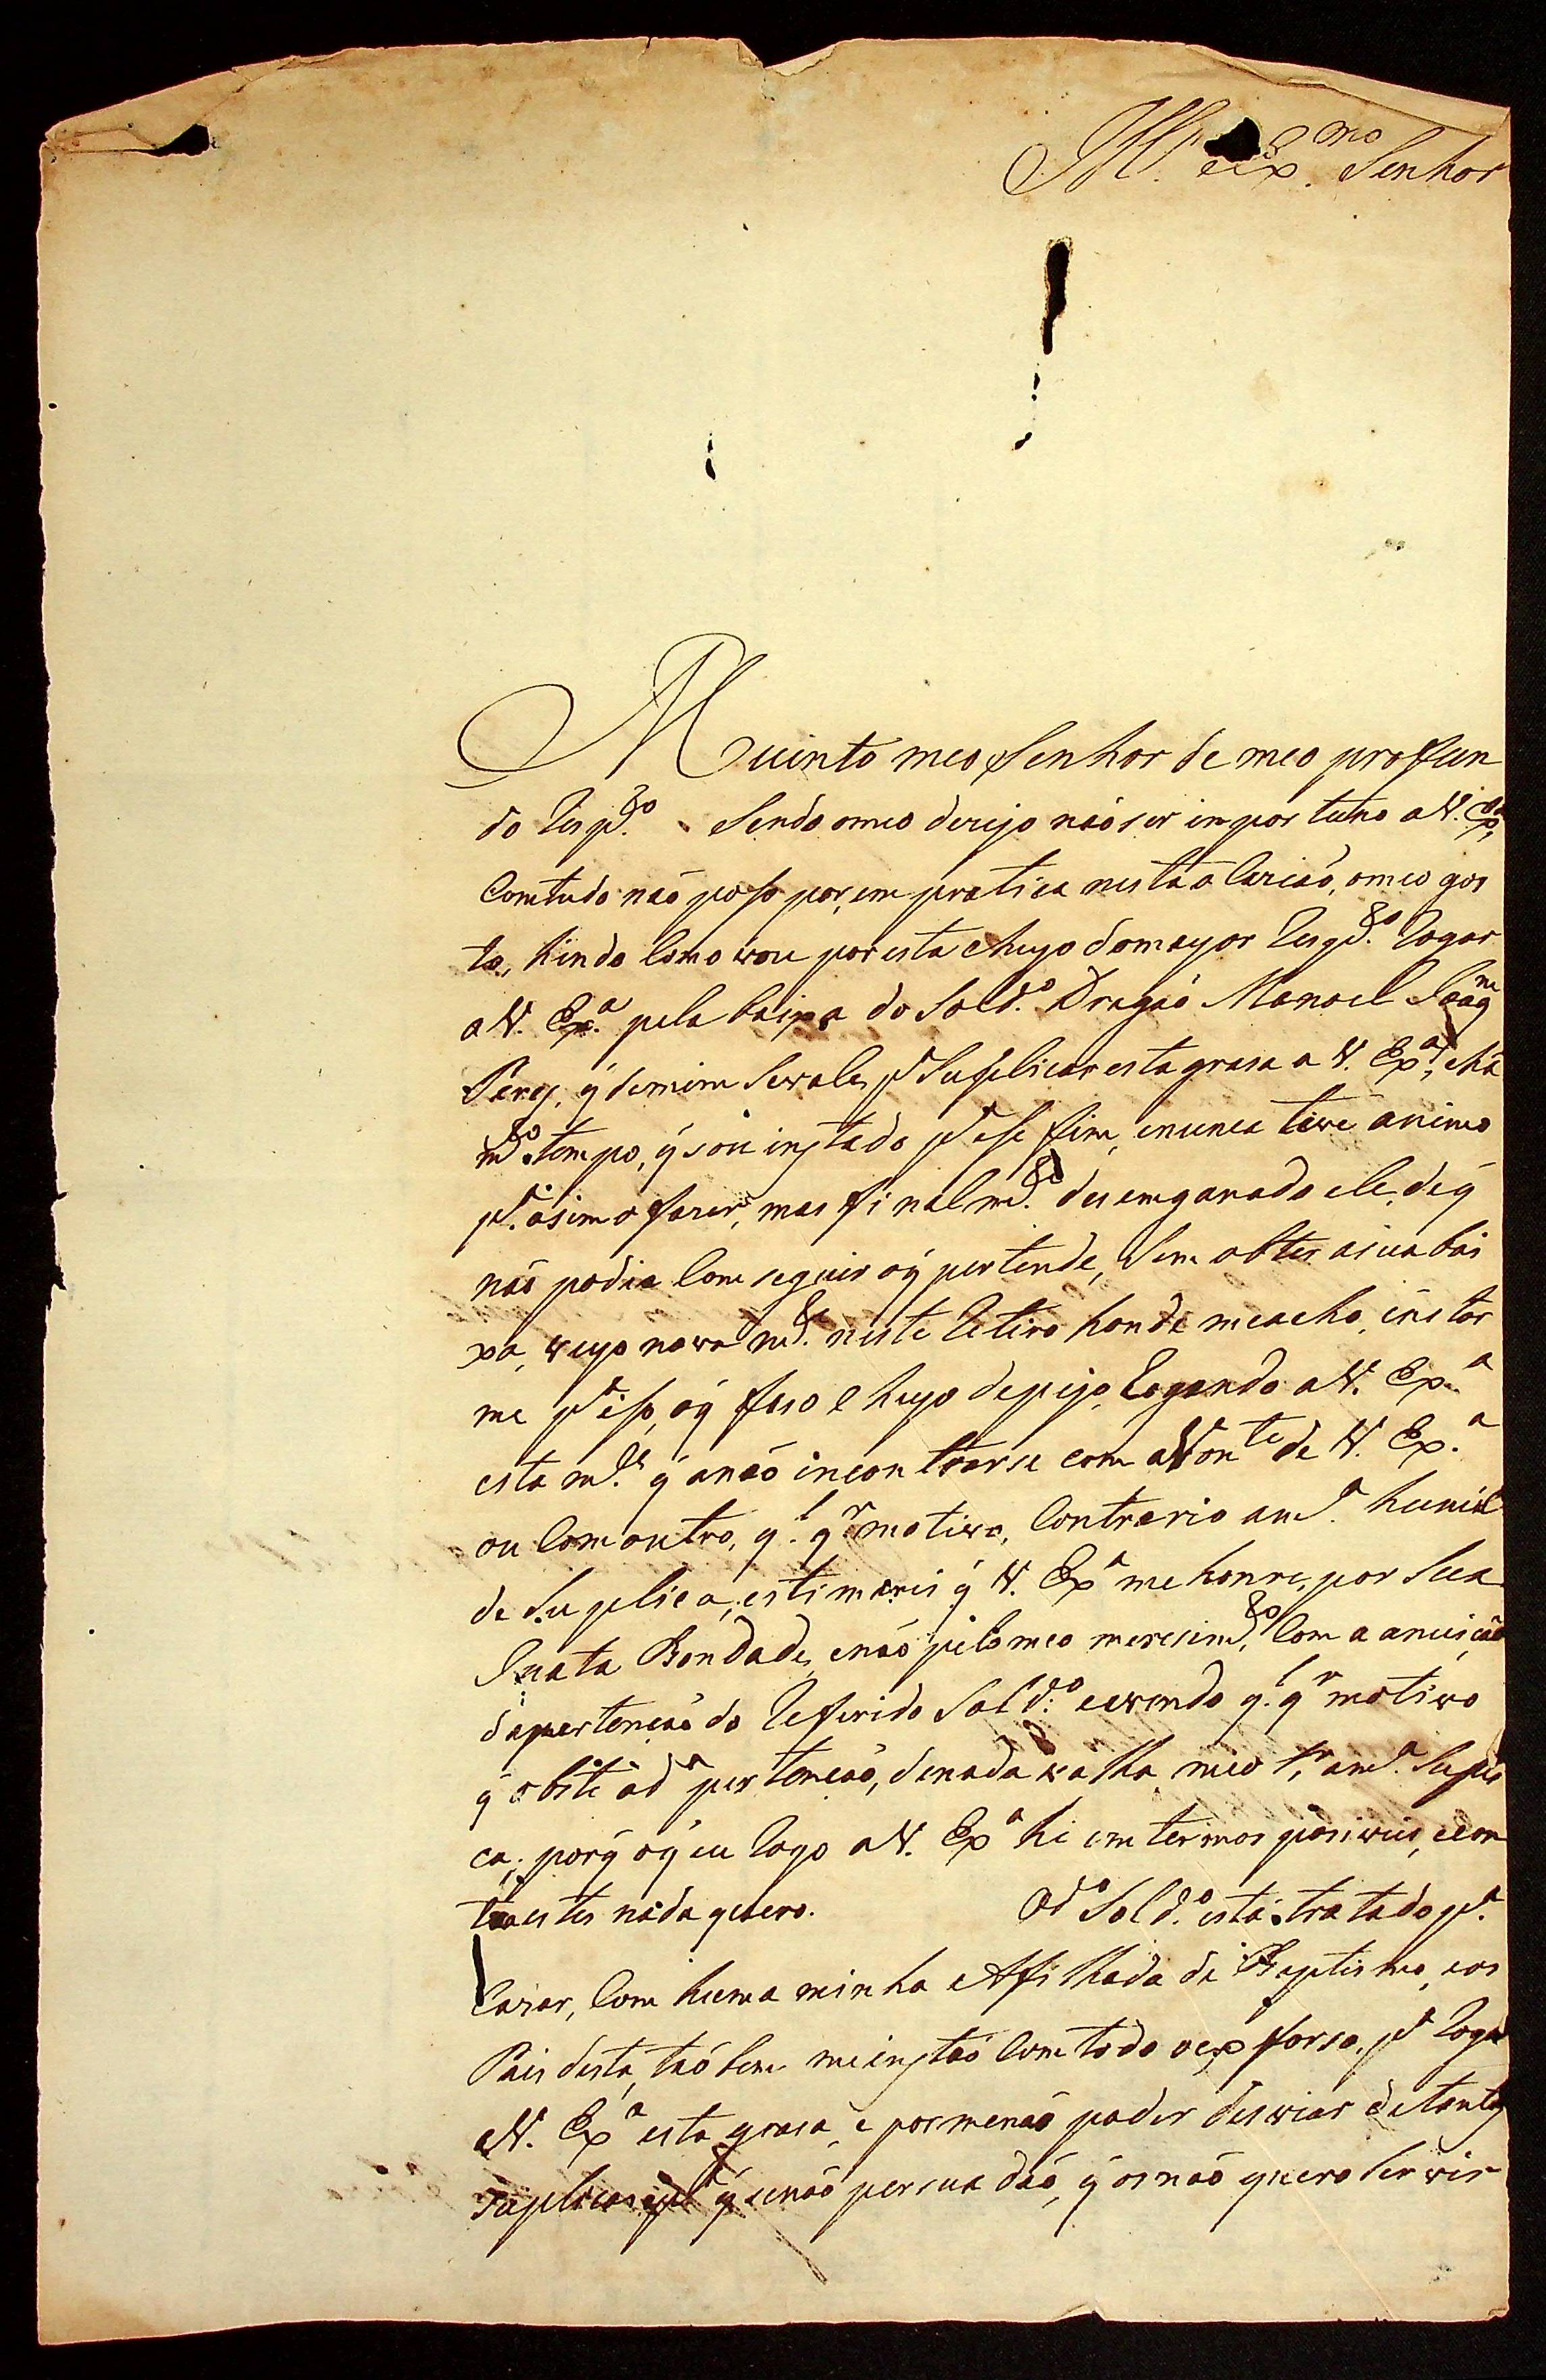 Ill.mo e Ex.mo Senhor
Muinto meo Senhor de meo profun
do Resp.to Sendo omeo dezejo naõ ser importuno aV. Ex.a,
Comtudo naõ poso por, em pratica nesta ocaziaõ, omeo gos
to, hindo Como vou por esta cheyo domayor Resp.to Rogar
a V. Ex.a pela baixa do Sold.o Dragaõ Manoel Joaq.m
Perez, q̃ demim Sevale, p.a Suplicar esta grasa a V. Ex.a, e há
m.to tempo, q̃ sou instado p.a ese fim, enunca tive animo
p.a asim o fazer, mas finalm.te desemganado ele, de q̃
naõ podia Comseguir oq̃ pertende, Sem obter asua bai
xa, veyo novam.te neste Retiro honde meacho, instar
me p.a iso, oq̃ faso cheyo depejo, Rogando aV. Ex.a
esta m.ce q̃ anaõ incontrarse com aVont.e de V. Ex.a
ou Com outro, q.l q.r motivo, Contrario am.a humil
de Suplica, estimarei q̃ V. Ex.a me honre, por Sua
Inata Bondade, enaõ pelo meo meresim.to, Com a anuiçaõ
dapertençaõ do Referido Sold.o eavendo q.l q.r motivo
q̃ obste ad.a pertençaõ, denada valha meo r.o am.a Supli
ca; porq̃ oq̃ eu Rogo aV. Ex.a hé em termos posiveis, econ
tra estes nada quero. Od.o Sold.o está tratado p.a
Cazar, Com huma minha Afilhada de Baptismo, eos
Pais desta, taõbem meinstaõ Com todo oexforso, p.a Rogar
aV. Ex.a esta grasa, e por menaõ poder desviar detantas
suplicas, e p.a q̃ senaõ persuadaõ, q̃ osnaõ quero Servir